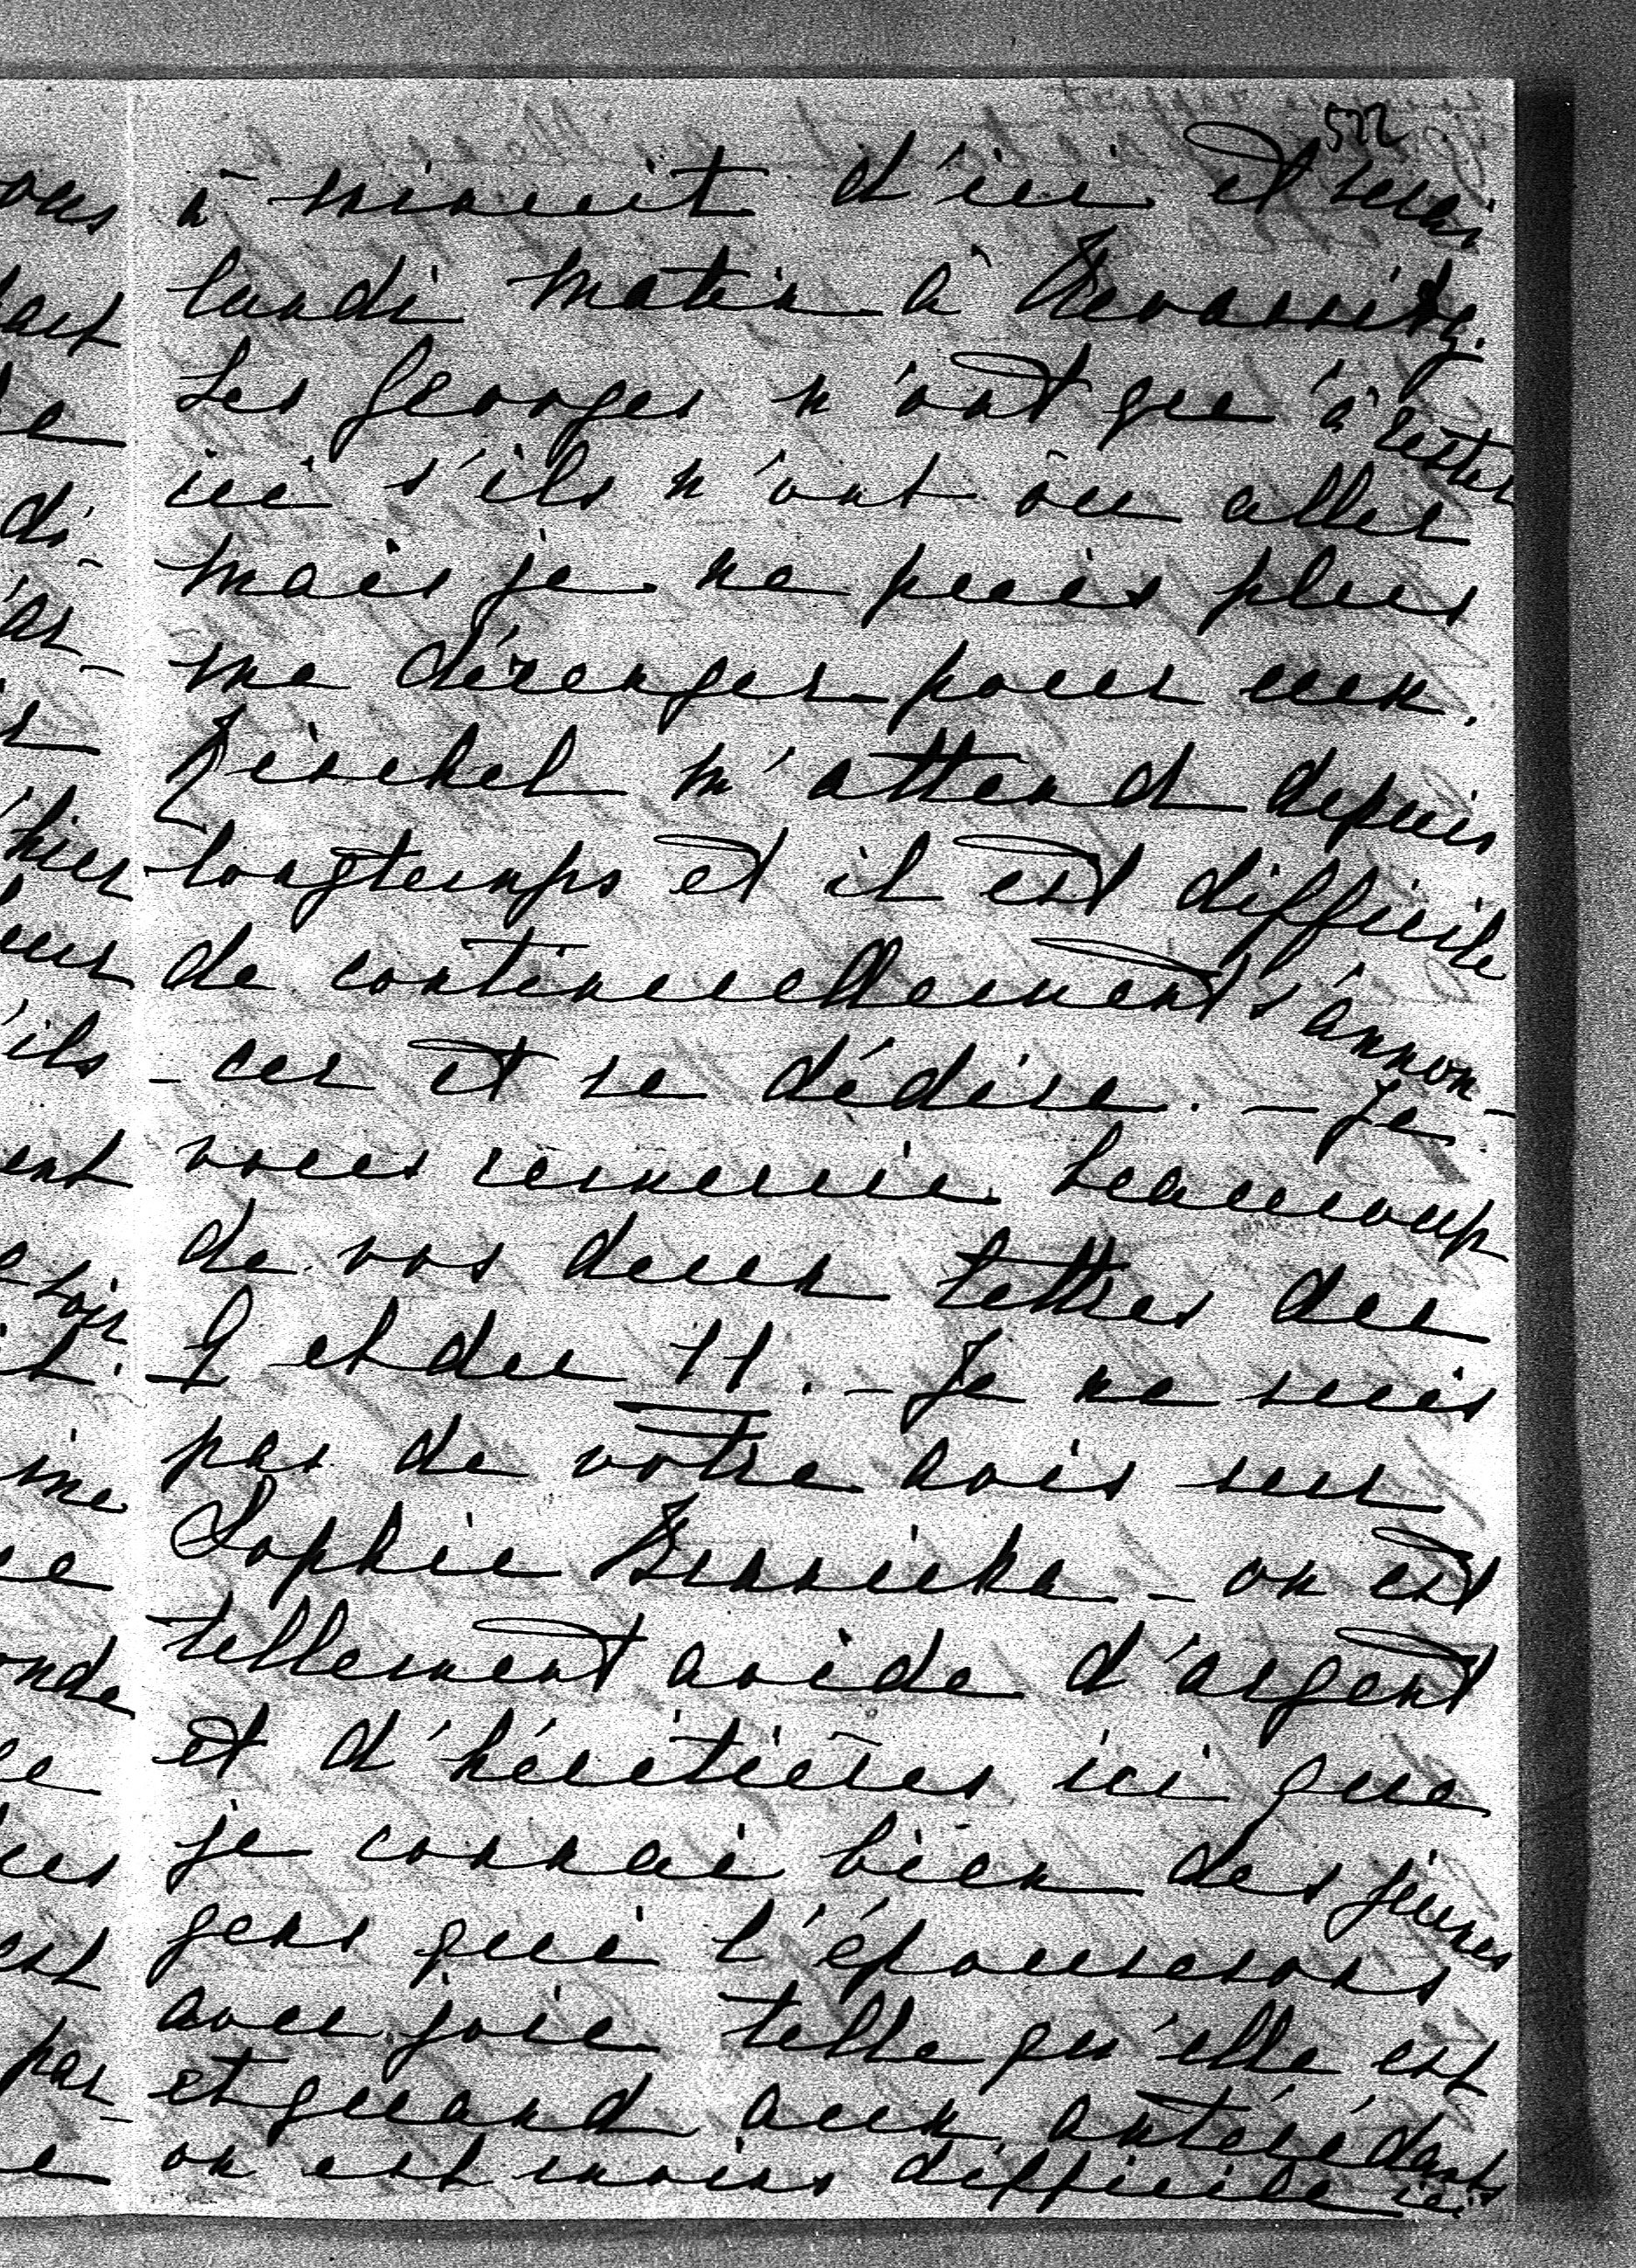 522
à minuit d'ici et serai
lundi matin à
Les Georges n'ont qu'à rester
ici s'ils n'ont où aller
mais je ne puis plus
me déranger pour eux.
m'attend depuis
longtemps et il est difficile
de continuellement s'annon-
-cer et se dédire. - Je
vous remercie beaucoup
de vos deux lettres du
9 et du 11. - Je ne suis
pas de votre avis sur
Sophie - on est
tellement avide d'argent
et d'héritières ici que
je connai bien des jeunes
gens qui l'épouserons
avec joie telle qu'elle est
et quand aux antécédants
on est moins difficile ici